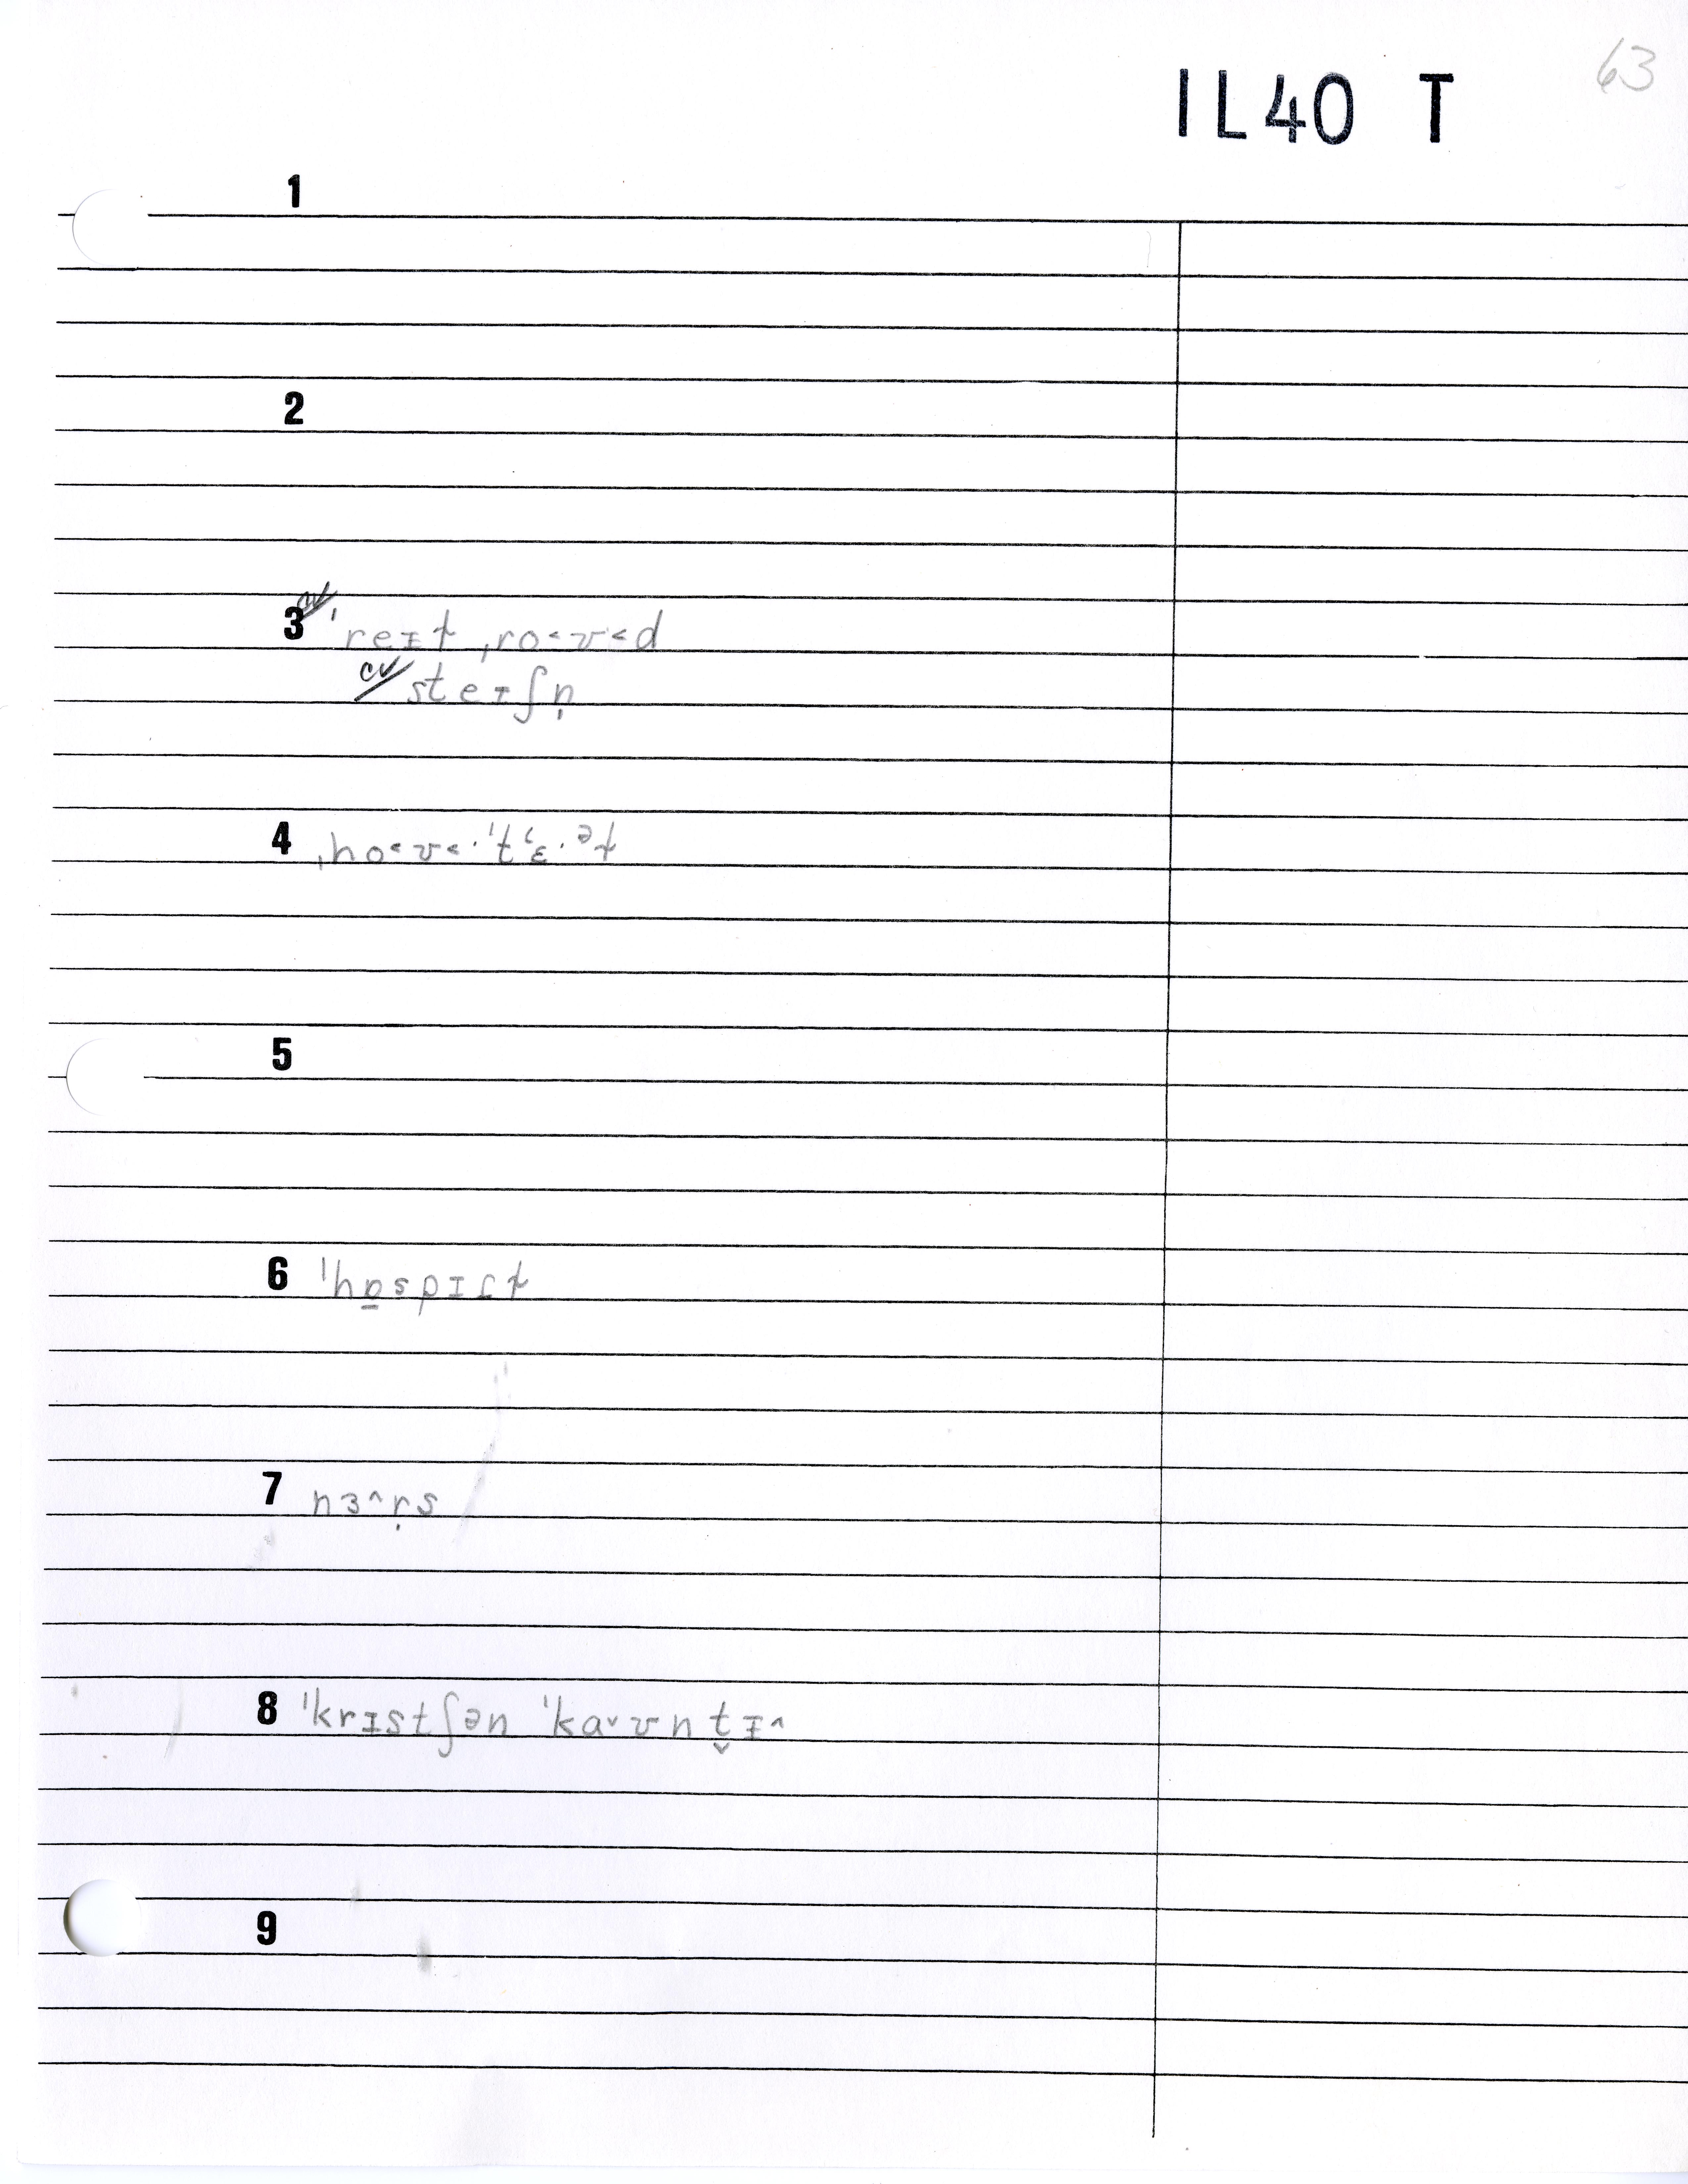 63
IL40 T
1
2
3 cv/ ˈreɪɫ ˌro˂ʊ˂d
cv/ steɪʃn̩
4 ˌho˂ʊ˂·ˈt‘ɛ·ᵊɫ
5
6 ˈhɒ̱spɪɾɫ
7 nɜ˄r̩s
8 ˈkrɪstʃən ˈka˅ʊnt̬ɪ˄
9